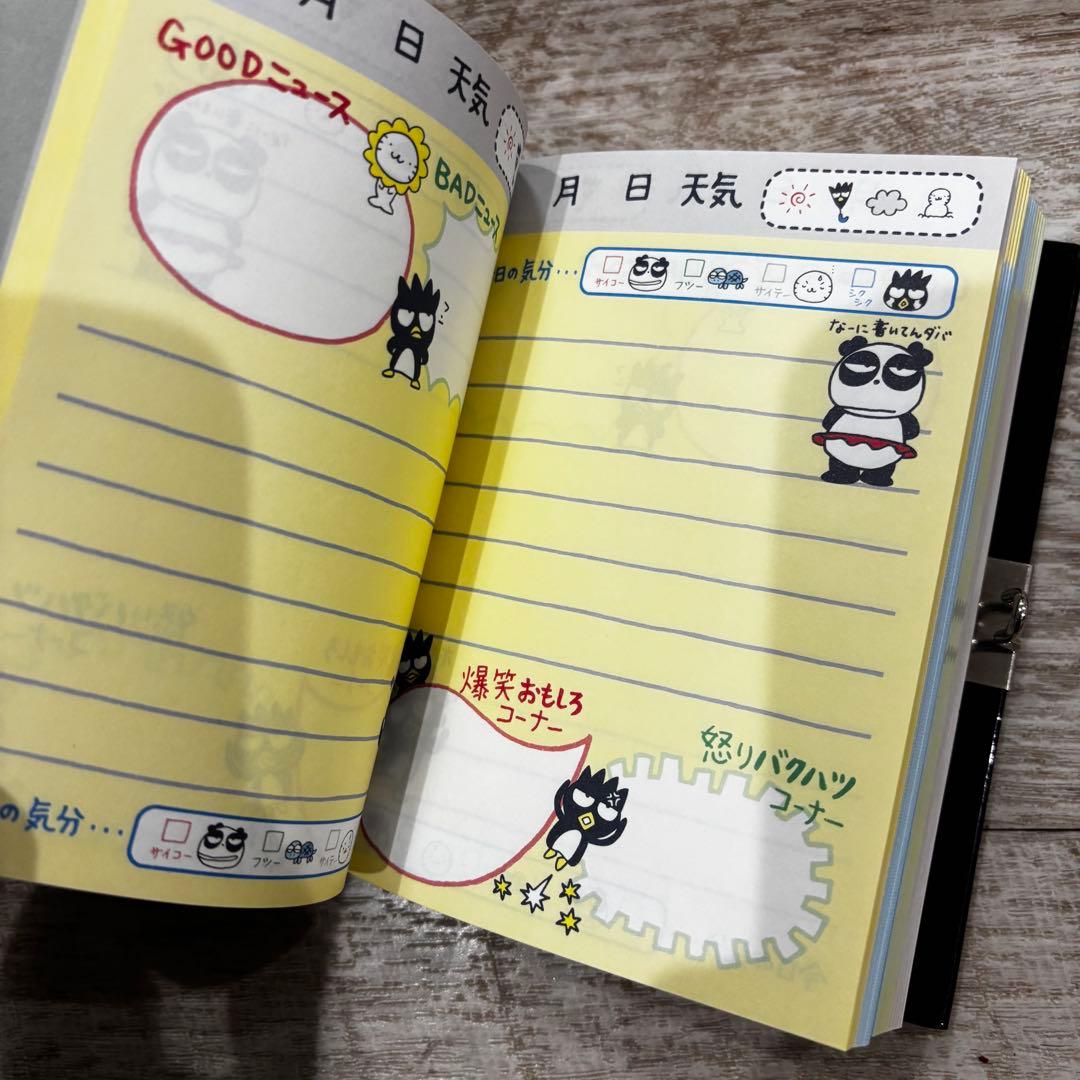 月 日 天気
GOODニュース
BADニュース
フン
の気分・・・
サイコー
フツー
サイテー
月 日 天気
日の気分・・・
サイコー
フツー
サイテー
シクシク
なーに書いてんダバ
爆笑おもしろ
コーナー
怒りバクハツ
コーナー